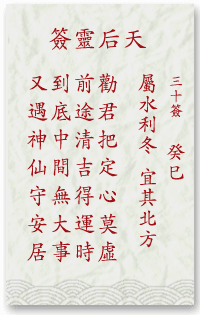 天后靈簽
三十簽 癸巳
屬水利冬 宜其北方
勸君把定心莫虛
前途清吉得運時
到底中間無大事
又遇神仙守安居